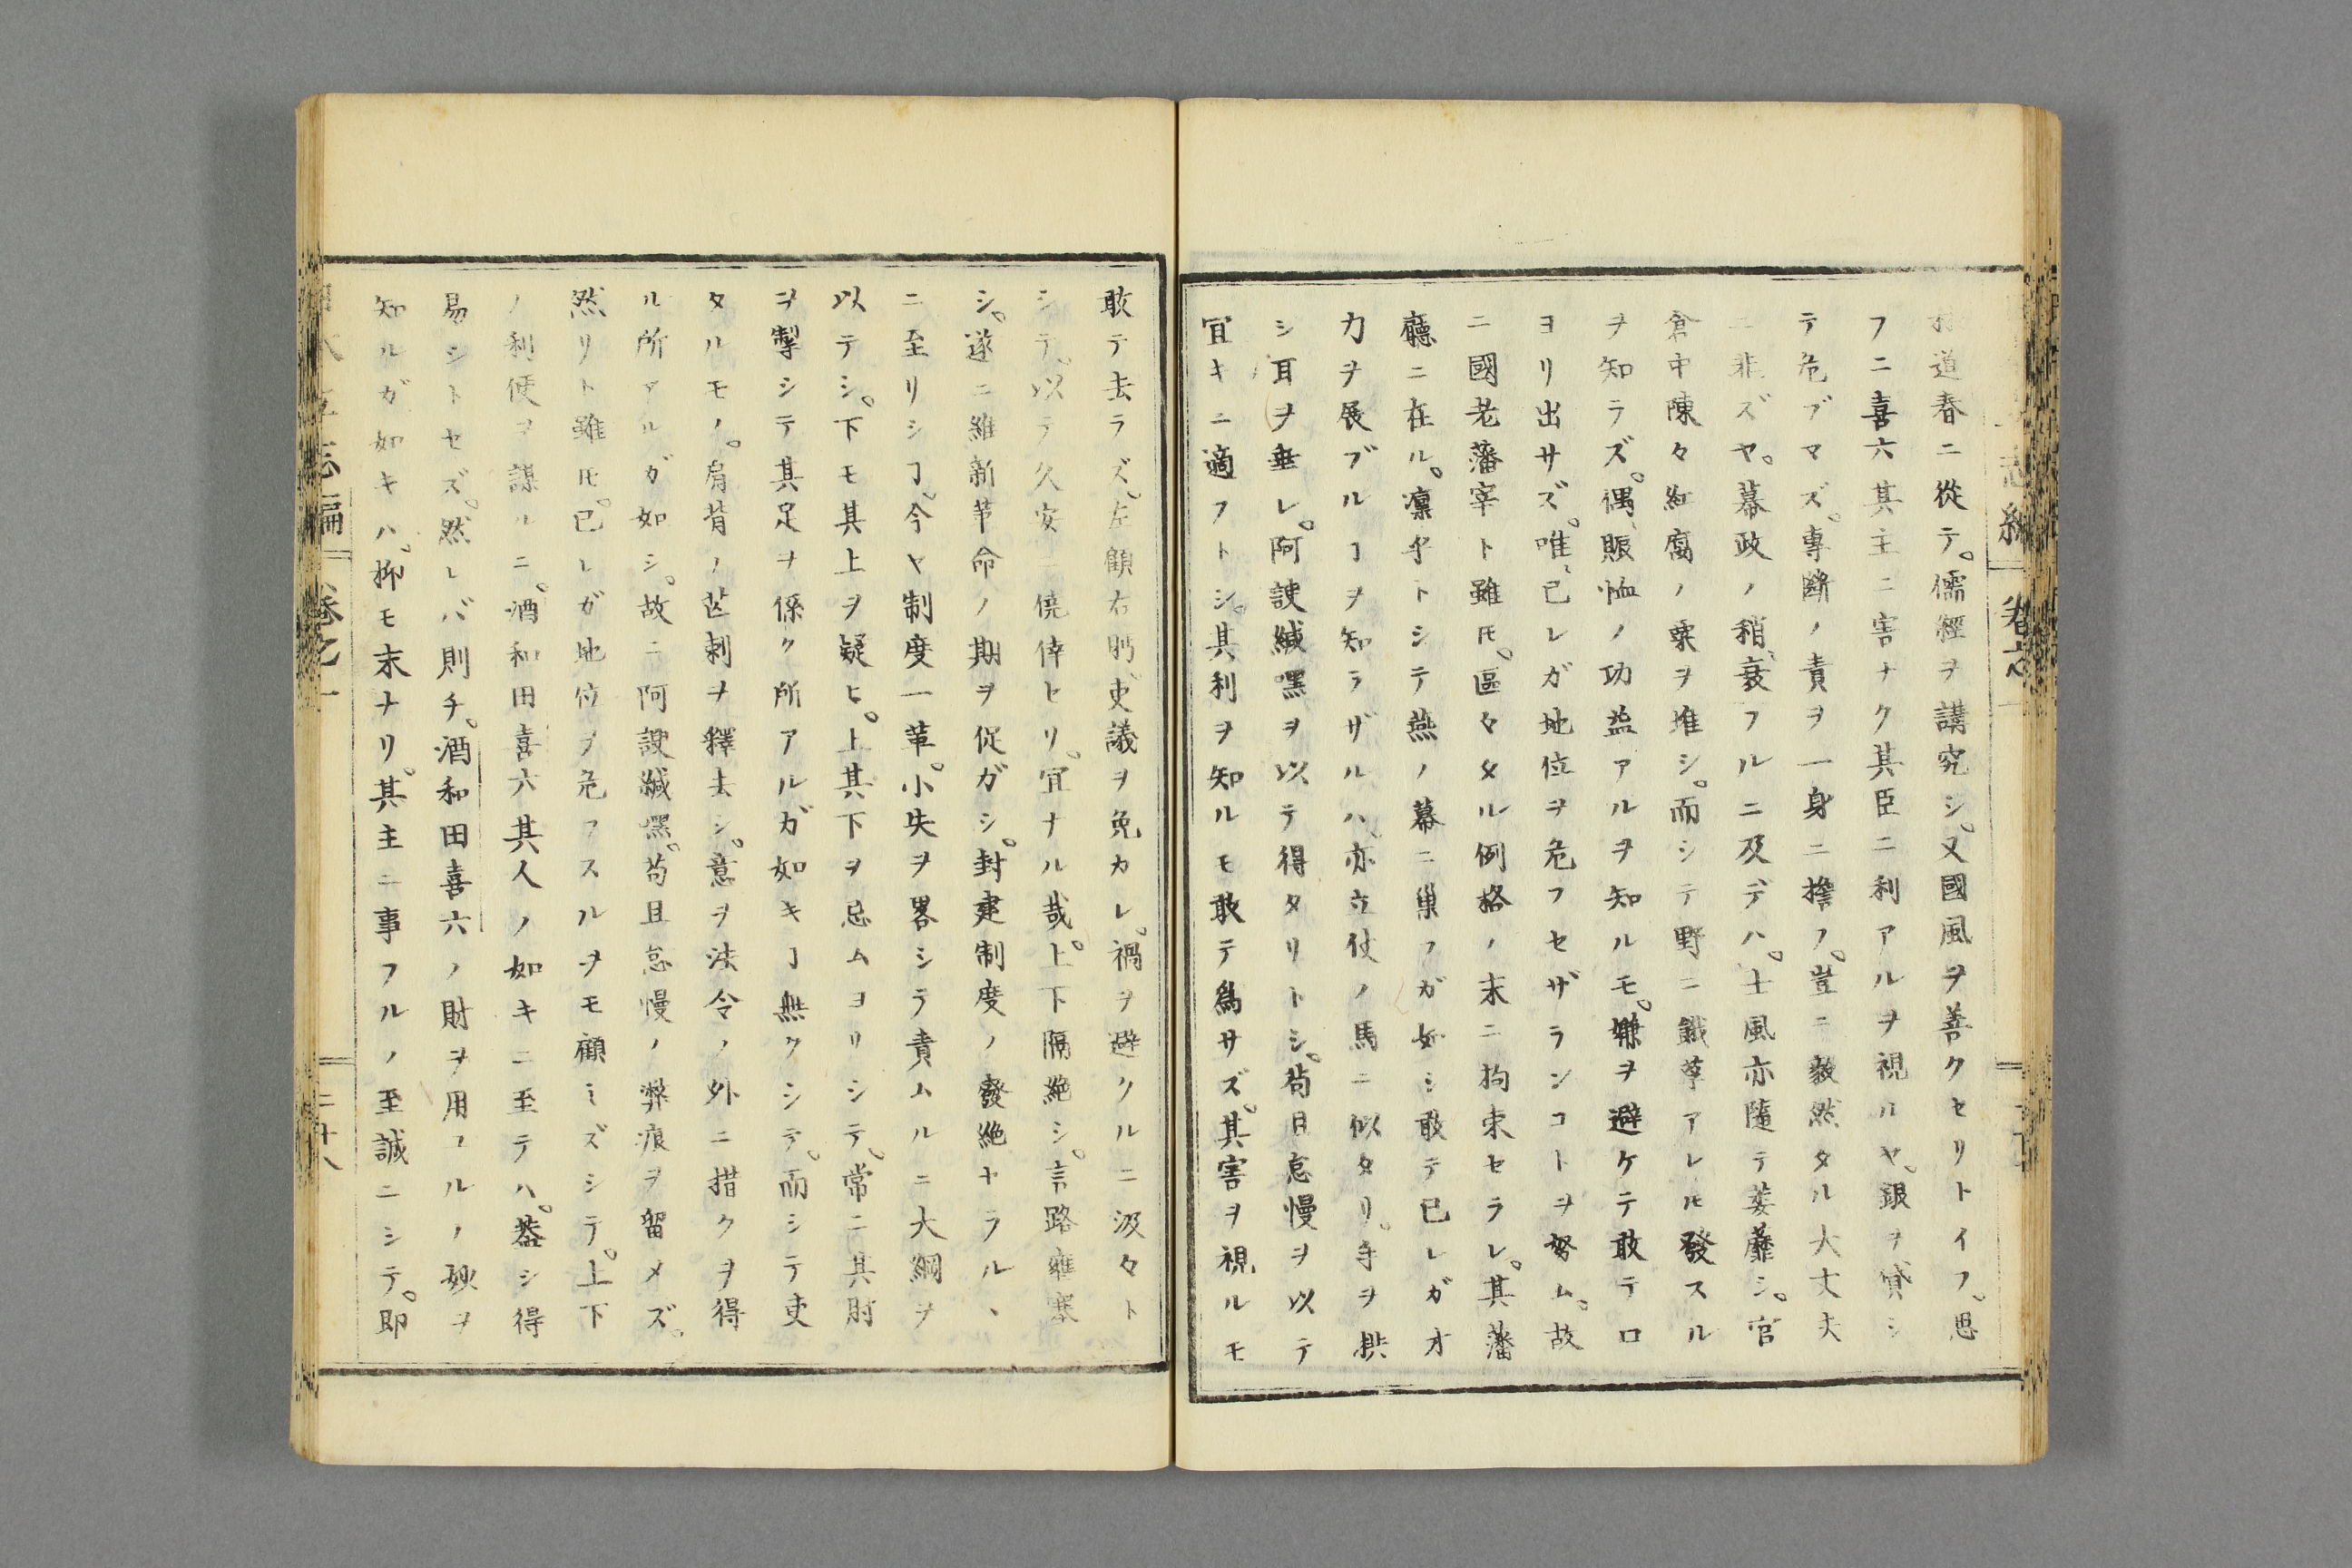 道春ニ從テ。儒經ヲ講究シ。又國風ヲ善クセリトイフ。思
フニ喜六其主ニ害ナク其臣ニ利アルヲ視ルヤ。銀ヲ貸シ
テ危ブマズ。專斷ノ責ヲ一身ニ擔フ。豈ニ毅然タル大丈夫
ニ非ズヤ。幕政ノ稍衰フルニ及デハ。士風亦隨テ萎靡シ。官
倉中陳々紅腐ノ粟ヲ堆シ。而シテ野ニ餓莩アレ𪜈發スル
ヲ知ラズ。偶賑恤ノ功益アルヲ知ルモ。嫌ヲ避ケテ敢テ口
ヨリ出サズ。唯己レガ地位ヲ危フセザランコトヲ努ム。故
ニ國老藩宰ト雖𪜈。區々タル例格ノ末ニ拘束セラレ。其藩
廳ニ在ル。凛乎トシテ燕ノ幕ニ巣フガ如シ敢テ己レガオ
力ヲ展ブルヿヲ知ラザルハ。亦立仗ノ馬ニ似タリ。手ヲ拱
シ耳ヲ垂レ。阿諛緘嘿ヲ以テ得タリトシ。苟且怠慢ヲ以テ
宜キニ適フトシ。其利ヲ知ルモ敢テ爲サズ。其害ヲ視ルモ
敢テ去ラズ。左顧右眄、吏議ヲ免カレ。禍ヲ避クルニ汲々ト
シテ。以テ久安ニ僥倖セリ。宜ナル哉。上下隔絶シ。言路壅塞
シ。遂ニ維新革命ノ期ヲ促ガシ。封建制度ノ廢絶ヤラルヽ
ニ至リシヿ。今ヤ制度一革。小失ヲ畧シテ責ムルニ大綱ヲ
以テシ。下モ其上ヲ疑ヒ。上其下ヲ忌ムヨリシテ。常ニ其肘
ヲ掣シテ其足ヲ係ク所アルガ如キヿ無クシテ。而シテ吏
タルモノ。肩背ノ芒刺ヲ釋去シ。意ヲ法令ノ外ニ措クヲ得
ル所アルガ如シ。故ニ阿諛緘嘿。苟且怠慢ノ弊痕ヲ留メズ。
然リト雖𪜈。己レガ地位ヲ危フスルヲモ顧ミズシテ。上下
ノ利便ヲ謀ルニ。酒和田喜六其人ノ如キニ至テハ。蓋シ得
易シトセズ。然レバ則チ。酒和田喜六ノ財ヲ用フルノ敏ヲ
知ルガ如キハ。抑モ末ナリ。其主ニ事フルノ至誠ニシテ。即
志編 卷之一 二十八